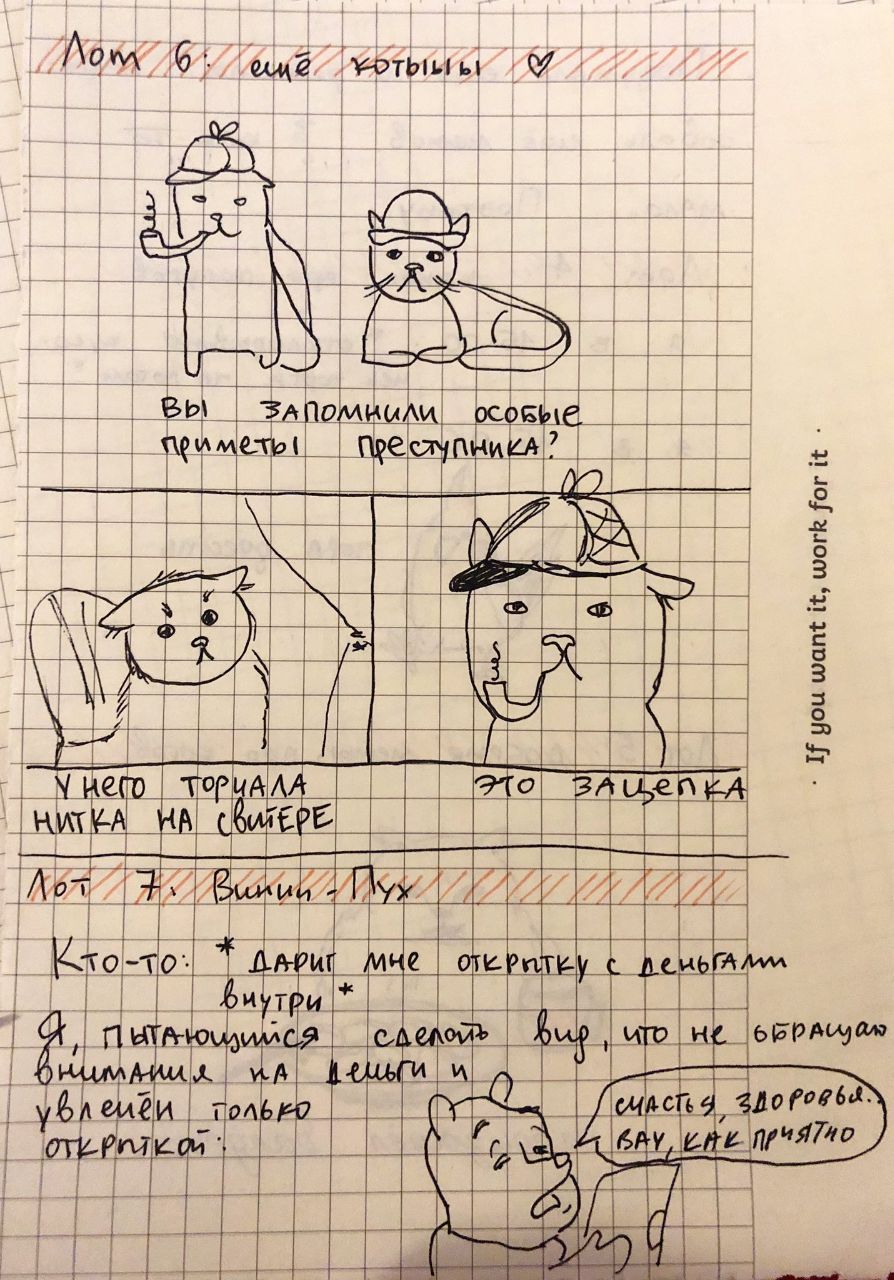 Лот 6: ещё котыыы ♡
ВЫ ЗАПОМНИЛИ ОСОБЫЕ
ПРИМЕТЫ ПРЕСТУПНИКА?
У НЕГО ТОРЧАЛА
НИТКА НА СВИТЕРЕ
ЭТО ЗАЦЕПКА
Лот 7. Винни-Пух
Кто-то: *ДАРИТ МНЕ ОТКРЫТКУ С ДЕНЬГАМИ
внутри*
Я, ПЫТАЮЩИЙСЯ СДЕЛАТЬ ВИД, ЧТО НЕ ОБРАЩАЮ
ВНИМАНИЯ НА ДЕНЬГИ И
УВЛЕЧЁН ТОЛЬКО
ОТКРЫТКОЙ:
СЧАСТЬЯ, ЗДОРОВЬЯ..
ВАУ, КАК ПРИЯТНО
· If you want it, work for it ·